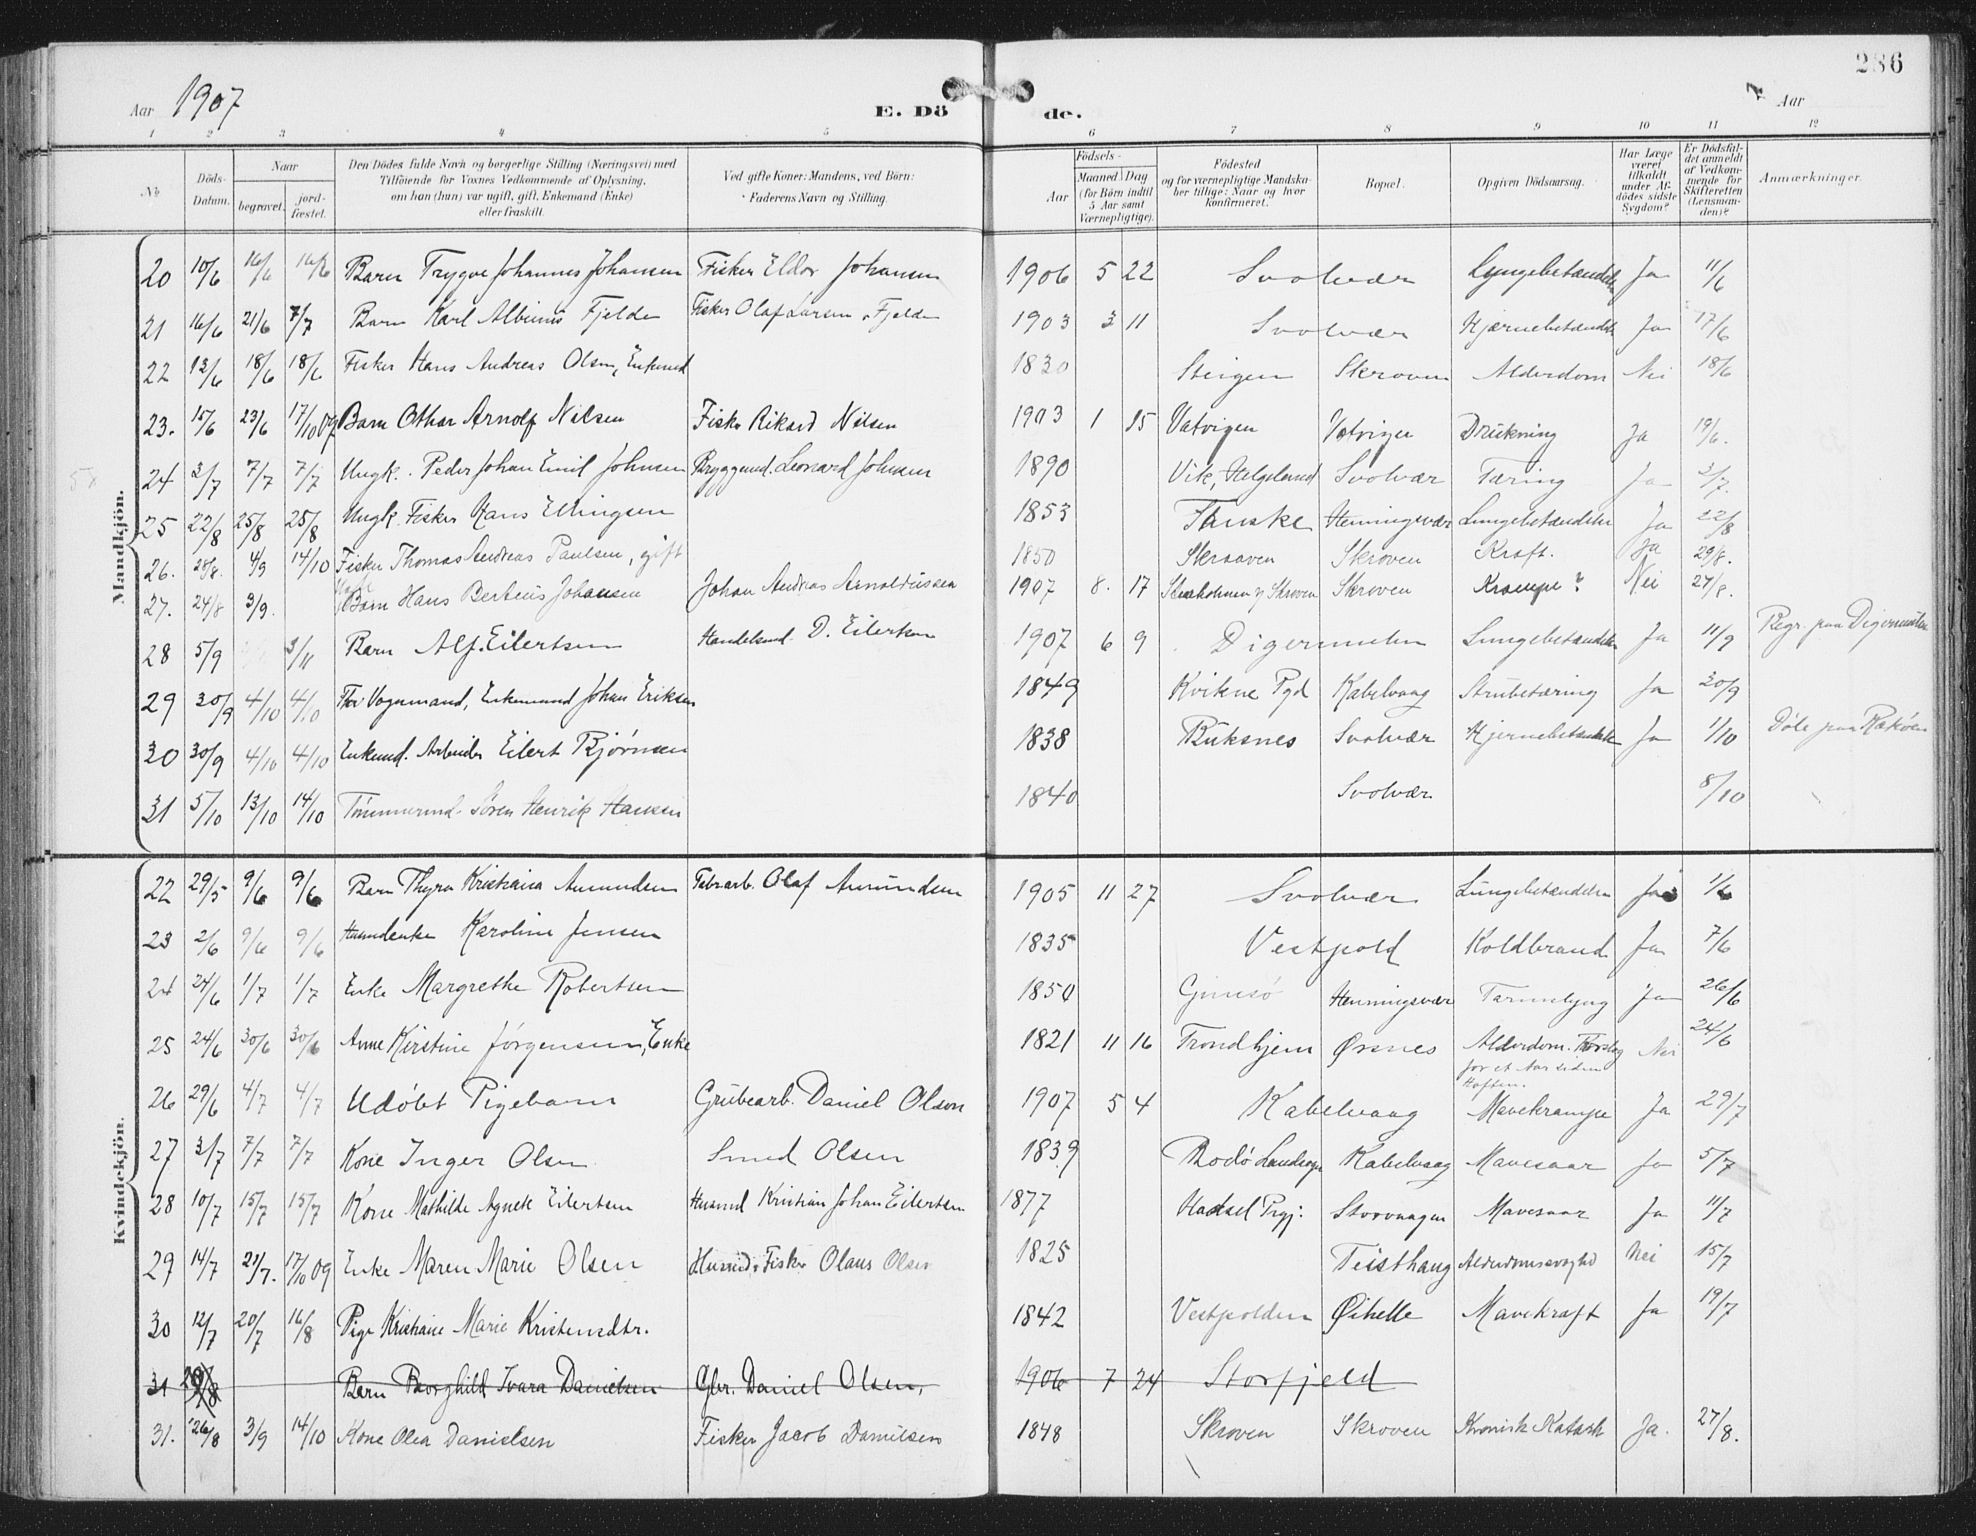 286
Aar 1907
E. Dö de.
Aar
1 2 3 4 5 6 7 8 9 10 11 12
No
Döds-Datum.
Naar
begravet.
jord-fæstet.
Den Dödes fulde Navn og borgerlige Stilling (Næringsvei) med
Tilföiende for Voxnes Vedkommende af Oplysning,
om han (hun) var ugift, gift, Enkemand (Enke)
eller fraskilt.
Ved gifte Koner: Mandens, ved Börn:
Faderens Navn og Stilling.
Födsels-
Aar
Maaned Dag
(for Börn indtil
5 Aar samt
Værnepligtige).
Födested
og for værnepligtige Mandska-
ber tillige: Naar og hvor
konfirmeret.
Bopæl.
Opgiven Dödsaarsag.
Har Læge
været
tilkaldt
under Af-
dödes sidste
Sygdom?
Er Dödsfal-
det anmeldt
af Vedkom-
mende for
Skifteretten
(Lensman-
den)?
Anmærkninger.
Mandkjön.
20 10/6 16/6 16/6 Barn Trygve Johannes Johansen Fisker Eldor Johansen 1906 5 22 Svolvær Lungebetændelse Ja 11/6
21 16/6 21/6 7/7 Barn Karl Albinus Fjelde Fisker Olaf Larsen Fjelde 1903 3 11 Svolvær Hjernebetændelse Ja 17/6
22 13/6 18/6 18/6 Fisker Hans Andreas Olsen, Enkmd 1830 Steigen Skroven Alderdom Nei 18/6
23. 15/6 23/6 17/10 09 Barn Othar Arnolf Nilsen Fisker Rikard Nilsen 1903 1 15 Vatvigen Vatvigen Drukning Ja 19/6.
24 3/7 7/7 7/7 Ungk. Peder Johan Emil Johnsen Byggemd. Leonard Johnsen 1890 Vik, Helgeland Svolvær Tæring Ja 3/7.
25 22/8 25/8 25/8 Ungk. Fisker Hans Ellingsen 1853 Fauske Henningsvær Lungebetændelse Ja 22/8
26. 28/8. 4/9 14/10 Fisker Thomas Andreas Paulsen, gift 1850 Skraaven Skroven Kræft. Ja 29/8.
27. 24/8 3/9. Barn Hans Berteus Johansen Johan Andreas Arnoldussen 1907 8. 17 Skroven Skroven Krampe? Nei 27/8.
28 5/9 3/11 Barn Alf Eilertsen Handelsmd. D. Eilertsen 1907 6 9 Digermulen Lungebetændelse Ja 11/9 Begr. paa Digermulen
29 30/9 4/10 4/10 Vognmand, Enkemand Johan Eriksen 1849 Kvikne Pgd Kabelvaag Strubetæring Ja 30/9
30 30/9 4/10 4/10 Enkemd. Arbeider Eilert Bjørnsen 1838 Buksnes Svolvær Hjernebetændelse Ja 1/10 Døde paa
31 5/10 13/10 14/10 Tømmermd. Søren Henrik Hansen 1840 Svolvær 8/10
Kvindekjön.
22 29/5 9/6 9/6 Barn Thyra Kristiana Amundsen Fabrarb. Olaf Amundsen 1905 11 27 Svolvær Lungebetændelse Ja 1/6
23 2/6 9/6 9/6 Karoline Jensen 1835 Vestpold Koldbrand Ja 7/6
24 24/6 1/7 1/7 Enke Margrethe Robertsen 1850 Gimsø Henningsvær Tarmslyng Ja 26/6
25 24/6 30/6 30/6 Anne Kirstine Jørgensen, Enke 1821 11 16 Trondhjem Ørsnes Alderdom. for et Aar siden Hoften. Nei 24/6
26 29/6 4/7 4/7 Udøbt Pigebarn Grubearb. Daniel Olsen 1907 5 4 Kabelvaag Mavekrampe Ja 29/7
27 3/7 7/7 7/7 Kone Inger Olsen Smed Olsen 1839 Bodø Landsogn Kabelvaag Mavesaar Ja 5/7
28 10/7 15/7 15/7 Kone Mathilde Agnete Eilertsen Husmd Kristian Johan Eilertsen 1877 Hadsel Prgj. Storvaagen Mavesaar Ja 11/7
29 14/7 21/7. 17/10 09 Enke Maren Marie Olsen Husmd. Fisker Olaus Olsen 1825 Teisthaug Alderdomssvaghd Nei 15/7
30 12/7 20/7 16/8 Pige Kristiane Marie Kristensdtr. 1842 Vestpolden Øihelle Mavekræft Ja 19/7
31 Barn Borghild Ivara Danielsen Gbr. Daniel Olsen, 1906 7 24 Storfjeld
31. 26/8 3/9 14/10 Kone Olea Danielsen Fisker Jacob Danielsen 1848 Skroven Skroven Kronisk Katarh Ja. 27/8.